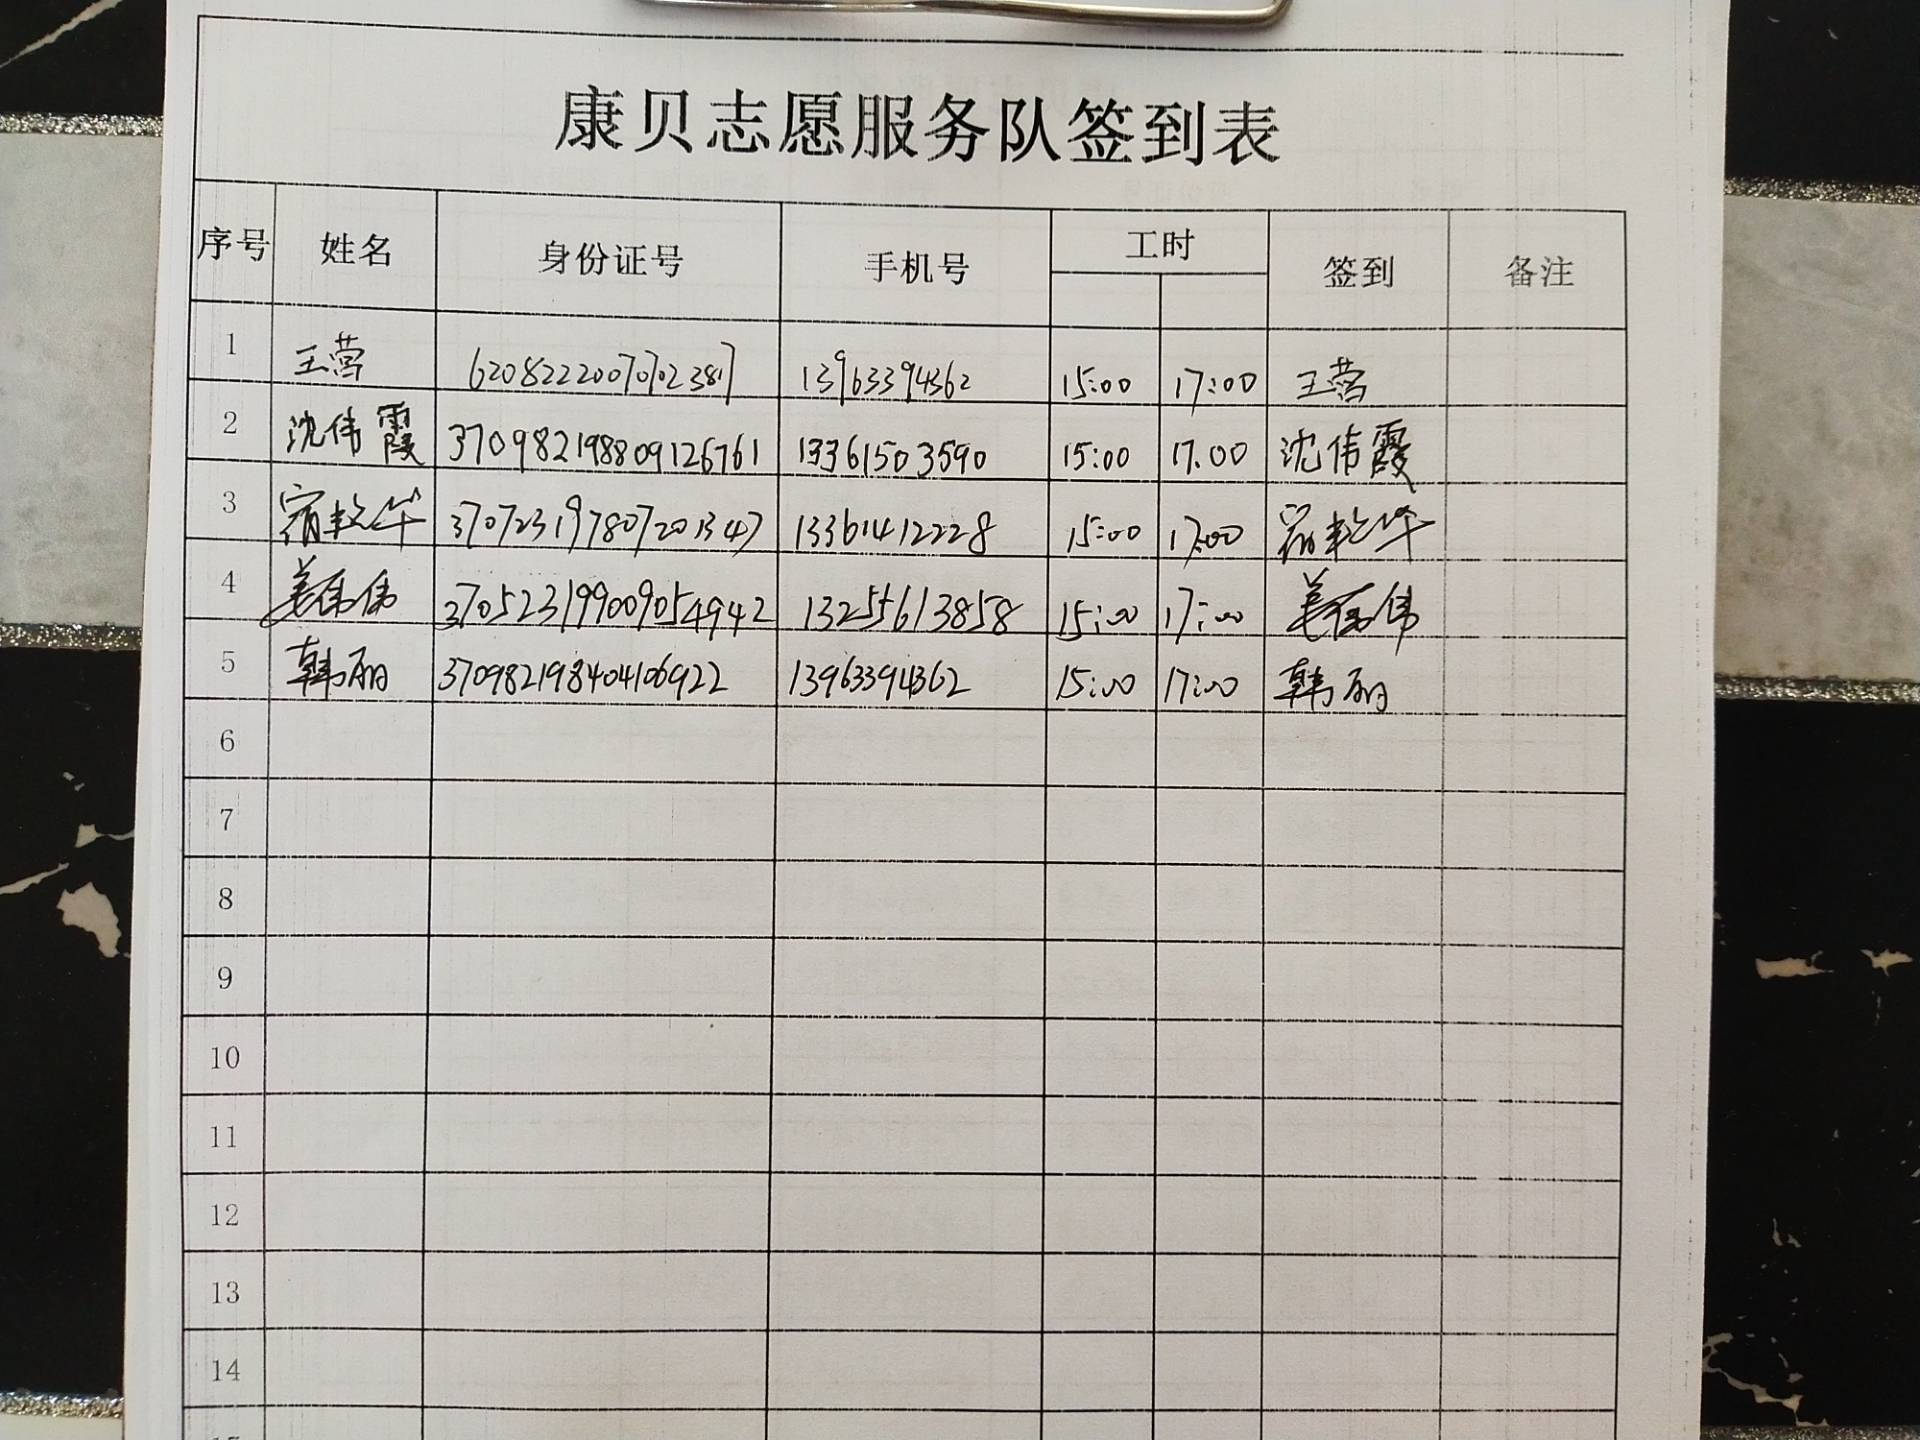 康贝志愿服务队签到表
序号 姓名 身份证号 手机号 工时 签到 备注
1 王营 620822200707023817 13963394362 15:00 17:00 王营
2 沈伟霞 370982198809126761 13361503590 15:00 17.00 沈伟霞
3 370723197807201347 13361412228 15:00 17:00
4 姜伟伟 370523199009054942 13255613858 15:00 17:00 姜伟伟
5 韩丽 370982198404106922 13963394362 15:00 17:00 韩丽
6
7
8
9
10
11
12
13
14